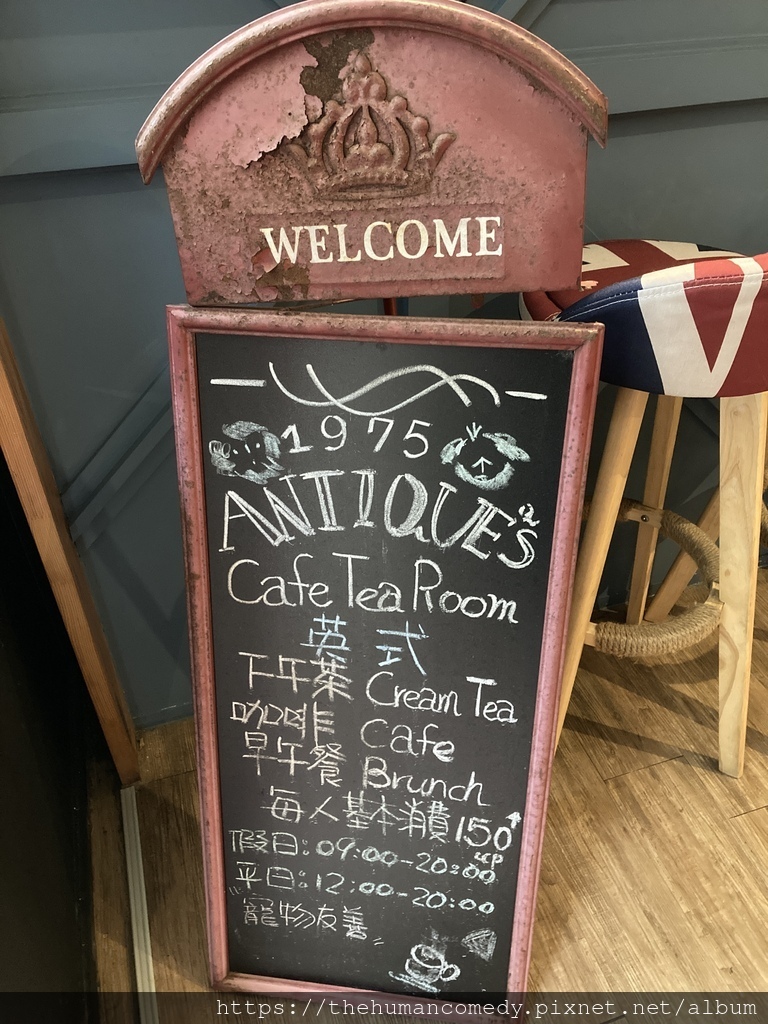 WELCOME
1975
ANTIQUE'S
Cafe Tea Room
英式
下午茶 Cream Tea
咖啡 Cafe
早午餐 Brunch
每人基本消費150↑
假日:09:00-20:00
平日:12:00-20:00
"寵物友善"
https://thehumancomedy.pixnet.net/album